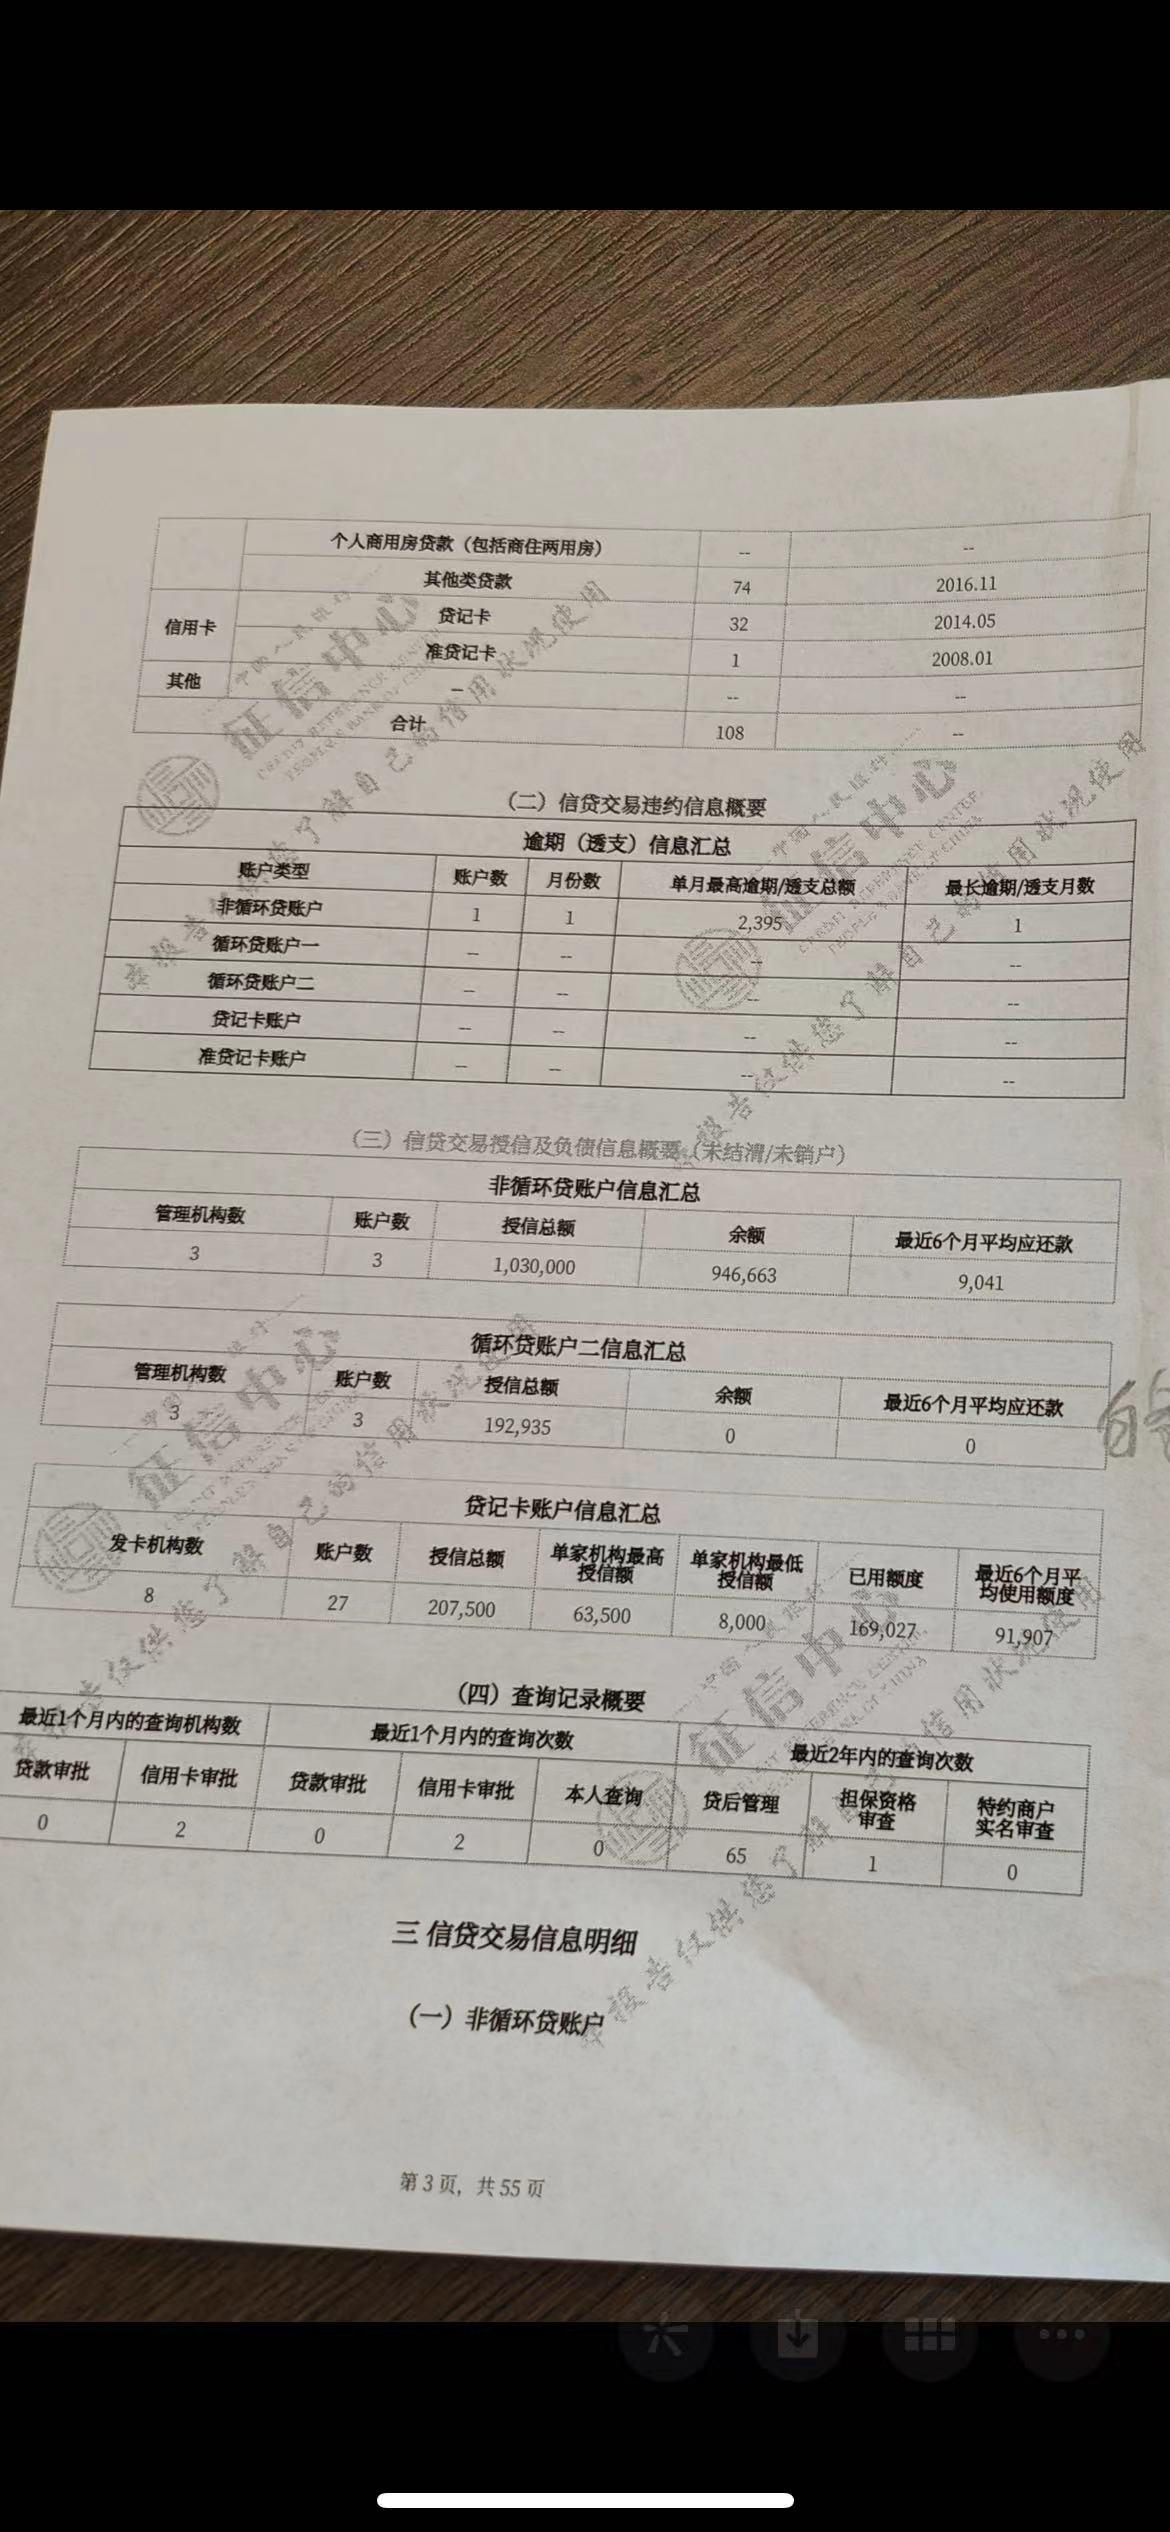 个人商用房贷款（包括商住两用房） -- --
其他类贷款 74 2016.11
信用卡 贷记卡 32 2014.05
准贷记卡 1 2008.01
其他 -- -- --
合计 108 --
（二）信贷交易违约信息概要
逾期（透支）信息汇总
账户类型 账户数 月份数 单月最高逾期/透支总额 最长逾期/透支月数
非循环贷账户 1 1 2,395 1
循环贷账户一 -- -- -- --
循环贷账户二 -- -- -- --
贷记卡账户 -- -- -- --
准贷记卡账户 -- -- -- --
（三）信贷交易授信及负债信息概要（未结清/未销户）
非循环贷账户信息汇总
管理机构数 账户数 授信总额 余额 最近6个月平均应还款
3 3 1,030,000 946,663 9,041
循环贷账户二信息汇总
管理机构数 账户数 授信总额 余额 最近6个月平均应还款
3 3 192,935 0 0
贷记卡账户信息汇总
发卡机构数 账户数 授信总额 单家机构最高授信额 单家机构最低授信额 已用额度 最近6个月平均使用额度
8 27 207,500 63,500 8,000 169,027 91,907
（四）查询记录概要
最近1个月内的查询机构数 最近1个月内的查询次数 最近2年内的查询次数
贷款审批 信用卡审批 贷款审批 信用卡审批 本人查询 贷后管理 担保资格审查 特约商户实名审查
0 2 0 2 0 65 1 0
三 信贷交易信息明细
（一）非循环贷账户
第 3 页，共 55 页
征信中心
本报告仅供您了解自己的信用状况使用
征信中心
本报告仅供您了解自己的信用状况使用
征信中心
本报告仅供您了解自己的信用状况使用
征信中心
本报告仅供您了解自己的信用状况使用